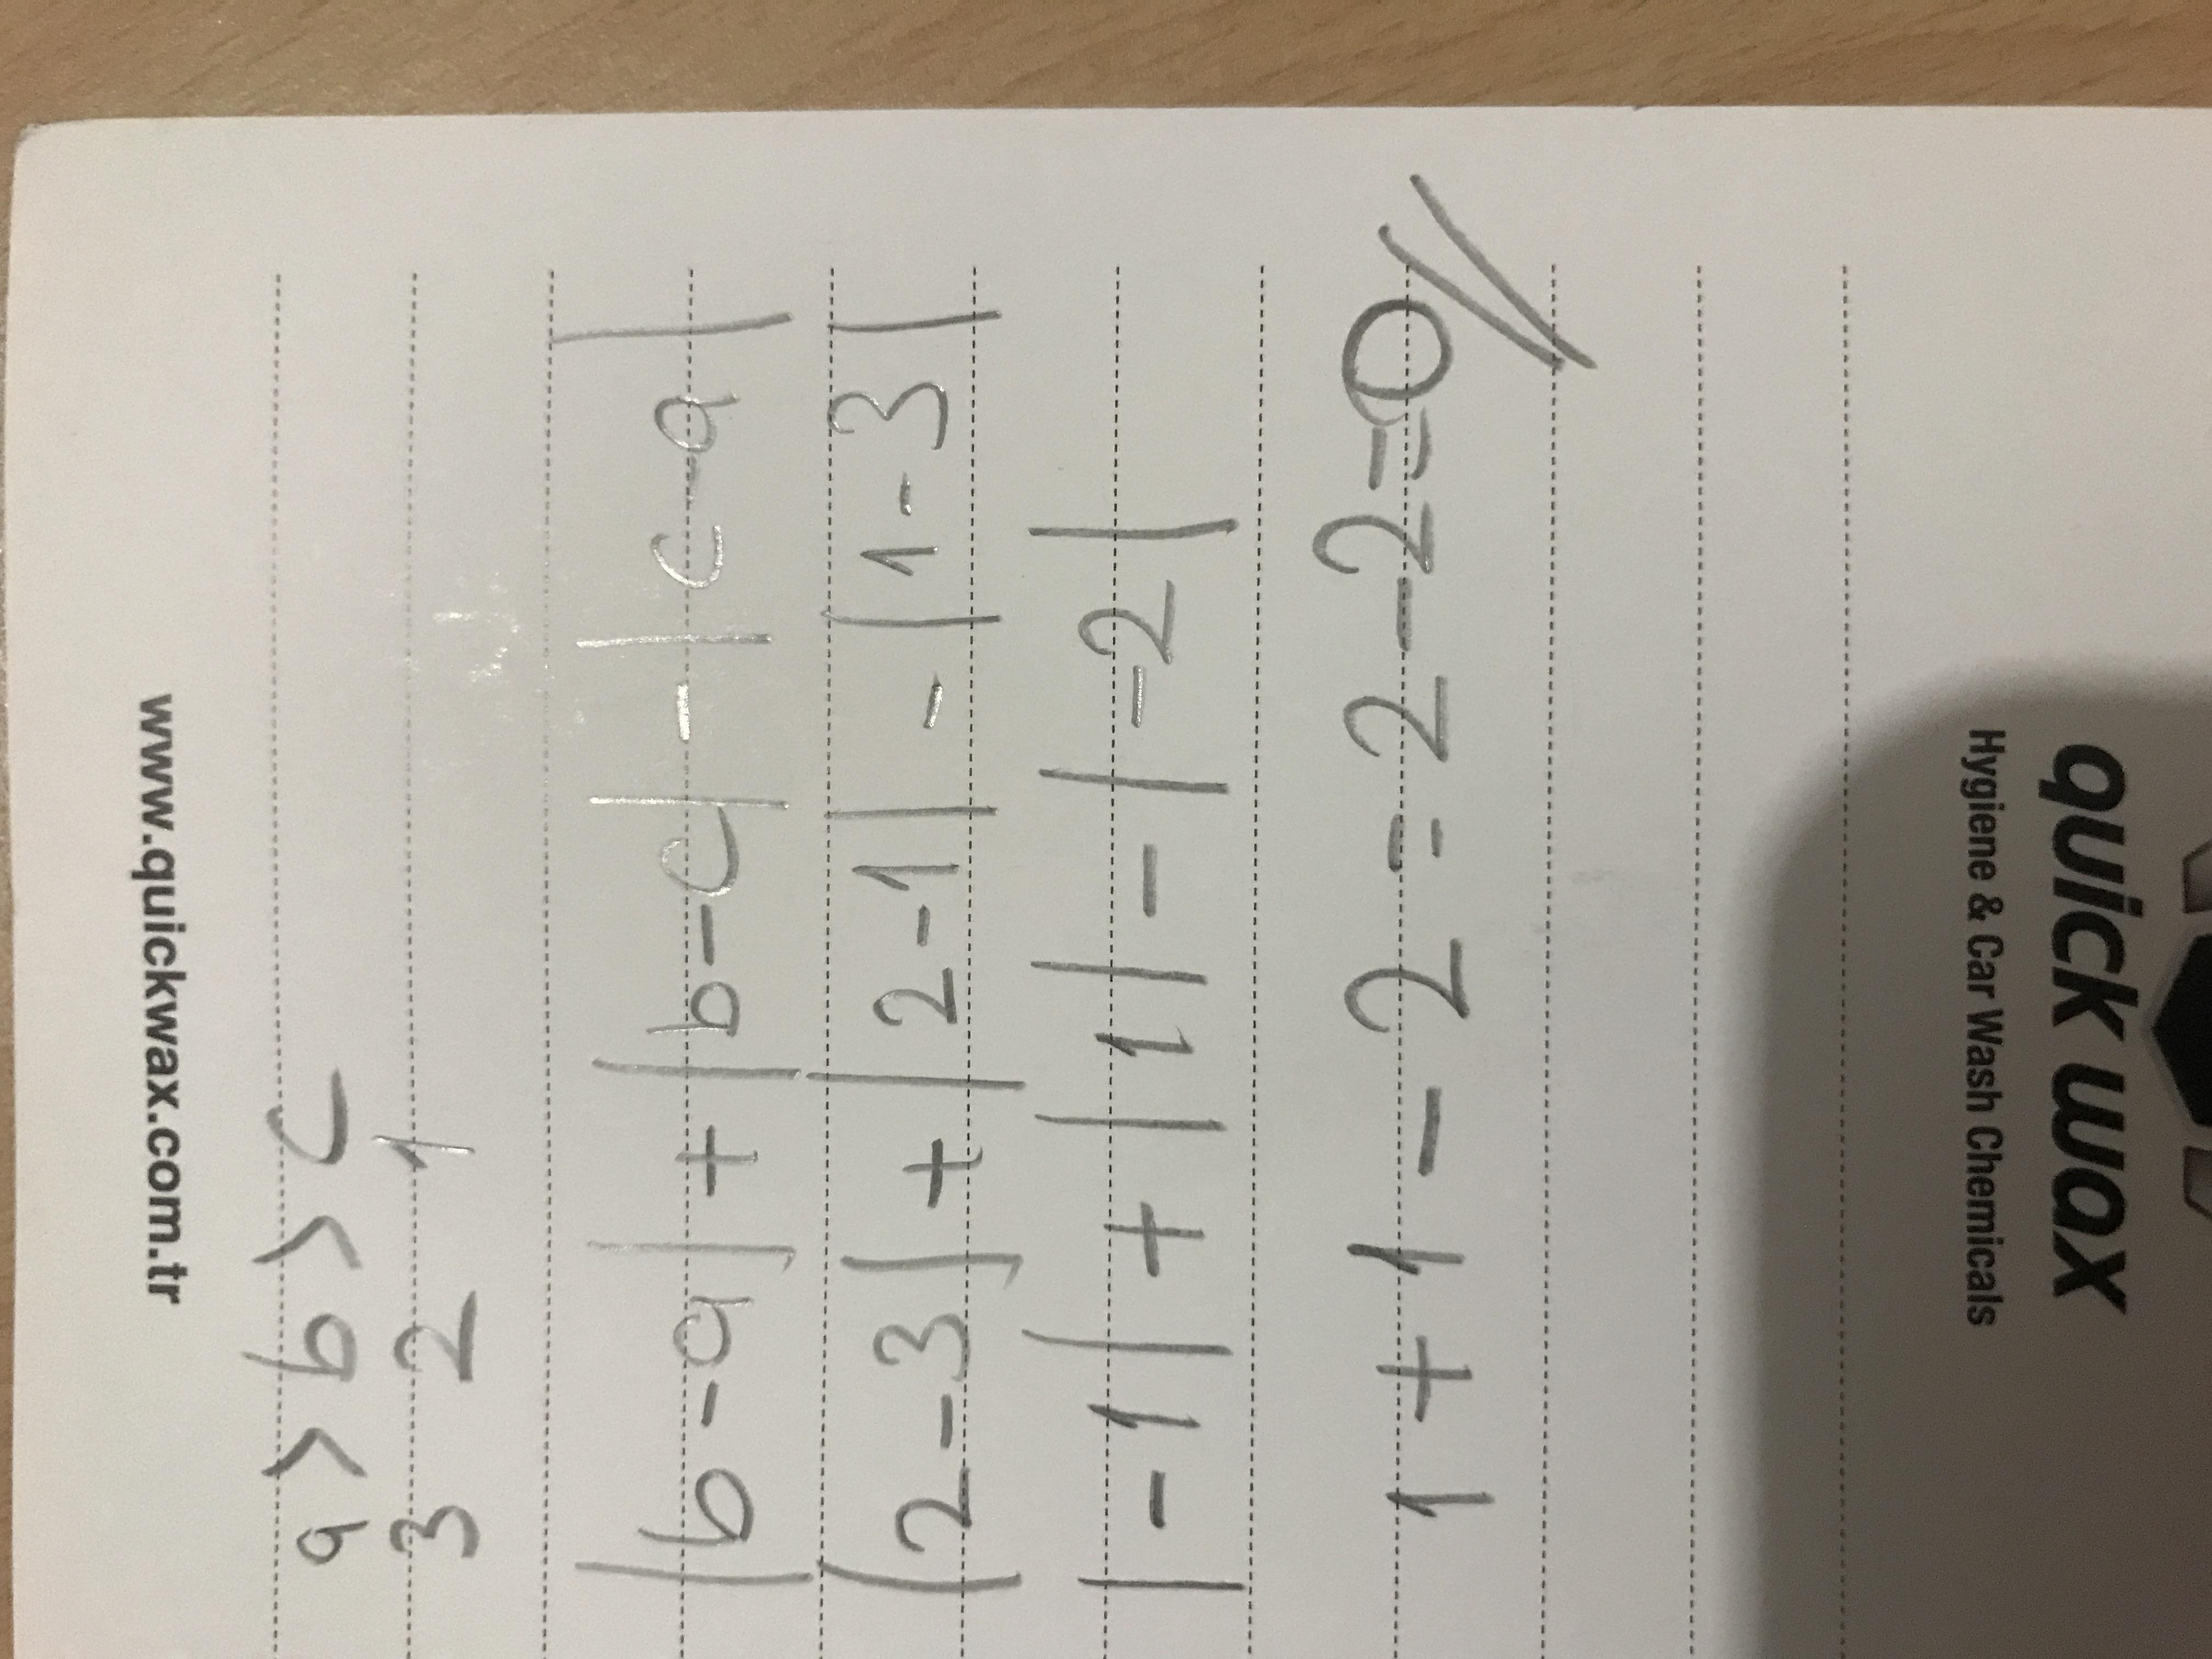 www.quickwax.com.tr
a > b > c
3 2 1
|b-a| + |b-c| - |c-a|
|2-3| + |2-1| - |1-3|
|-1| + |1| - |-2|
1 + 1 - 2 = 2 - 2 = 0
Hygiene & Car Wash Chemicals
quick wax